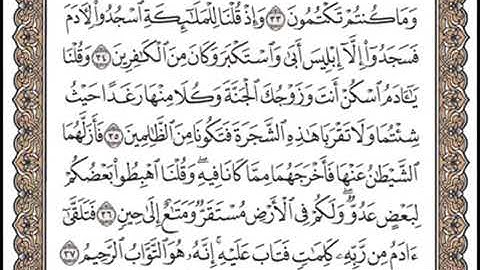 وَمَا كُنتُمْ تَكْتُمُونَ ٣٣ وَإِذْ قُلْنَا لِلْمَلَٰٓئِكَةِ ٱسْجُدُوا۟ لِـَٔادَمَ
فَسَجَدُوٓا۟ إِلَّآ إِبْلِيسَ أَبَىٰ وَٱسْتَكْبَرَ وَكَانَ مِنَ ٱلْكَٰفِرِينَ ٣٤ وَقُلْنَا
يَٰٓـَٔادَمُ ٱسْكُنْ أَنتَ وَزَوْجُكَ ٱلْجَنَّةَ وَكُلَا مِنْهَا رَغَدًا حَيْثُ
شِئْتُمَا وَلَا تَقْرَبَا هَٰذِهِ ٱلشَّجَرَةَ فَتَكُونَا مِنَ ٱلظَّٰلِمِينَ ٣٥ فَأَزَلَّهُمَا
ٱلشَّيْطَٰنُ عَنْهَا فَأَخْرَجَهُمَا مِمَّا كَانَا فِيهِ ۖ وَقُلْنَا ٱهْبِطُوا۟ بَعْضُكُمْ
لِبَعْضٍ عَدُوٌّ ۖ وَلَكُمْ فِى ٱلْأَرْضِ مُسْتَقَرٌّ وَمَتَٰعٌ إِلَىٰ حِينٍ ٣٦ فَتَلَقَّىٰٓ
ءَادَمُ مِن رَّبِّهِۦ كَلِمَٰتٍ فَتَابَ عَلَيْهِ ۚ إِنَّهُۥ هُوَ ٱلتَّوَّابُ ٱلرَّحِيمُ ٣٧